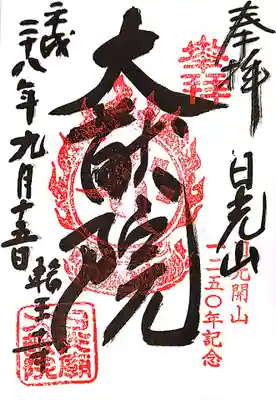 奉拝
日光山
日光開山
一二五〇年記念
大猷院
平成二十八年九月十五日
輪王寺